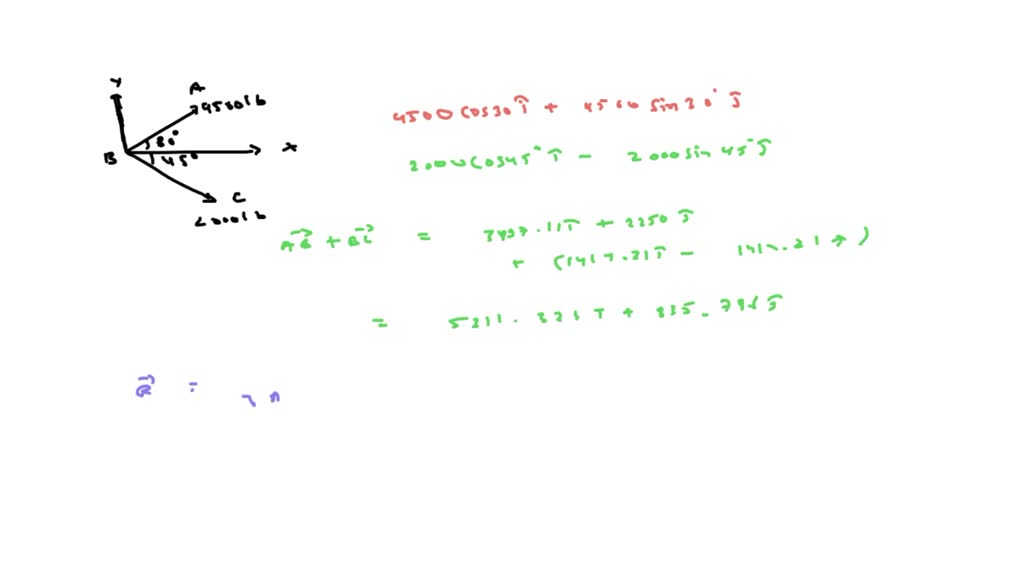 Y
A
4500lb
30°
B
45°
x
C
2000lb
4500 cos30 i + 4500 sin 30° j
2000 cos45° i - 2000 sin 45° j
AB + BC = 3897.11 i + 2250 j
+ (1414.21 i - 1414.21 )
= 5311.321 i + 835.786 j
R =